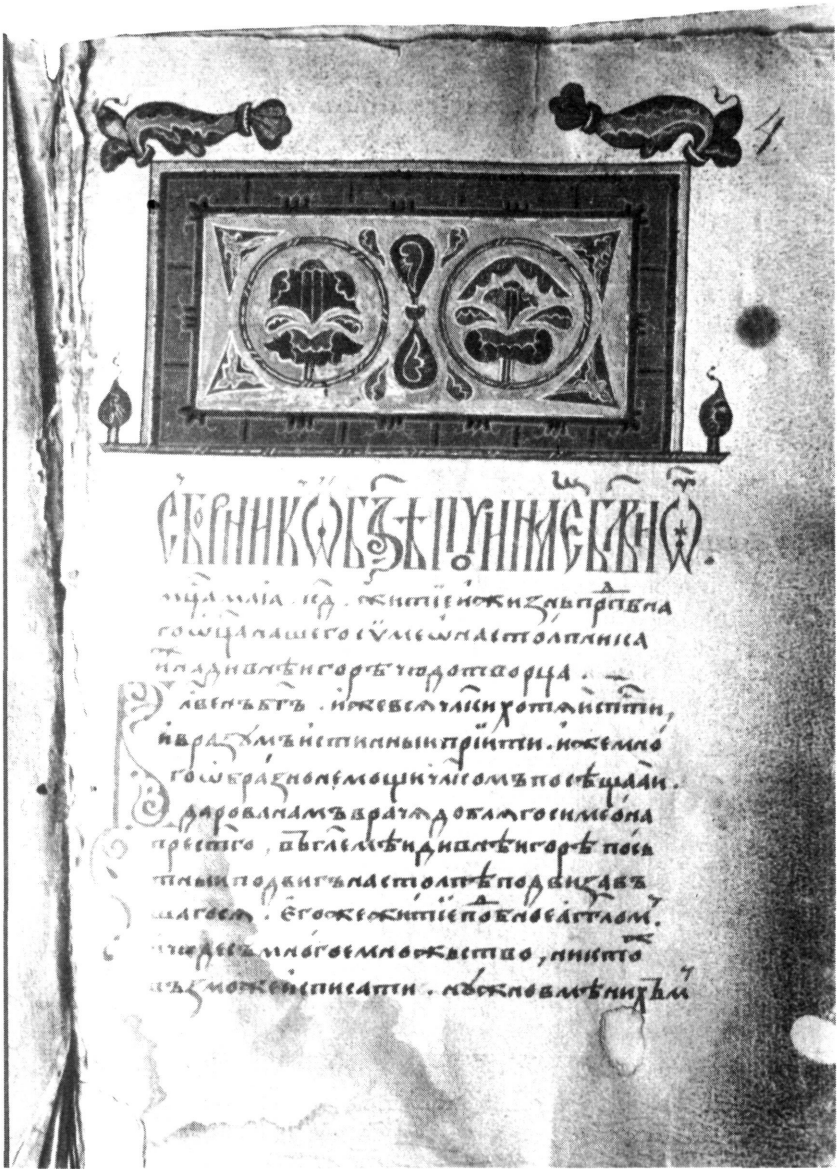 4
Сборник ѿ бз҃ѣ починаем бл҃ви ѿ
мц҃а маїа . кд҃ . житїе и жизнь прпⷣбна
го ѿц҃а нашего сѵмеѡна столпника
и на дивнѣи горѣ чюдотворца .
лавенъ бг҃ъ . иже всѧ чл҃ки хотѧи сп҃сти,
и в разумъ истинныи прїити . иже мно
го ѡбразно немощи чл҃комъ посѣщааи .
дарова нам врачѧ доблѧго симеона
прест҃го , въ гл҃емѣи дивнѣи горѣ пось
тныи подвигъ на столпѣ подвизавъ
шагосѧ . его же житїе поⷣбное аг҃глом .
и чюдесъ многое множьство , никтоⷤ
възможе исписати .